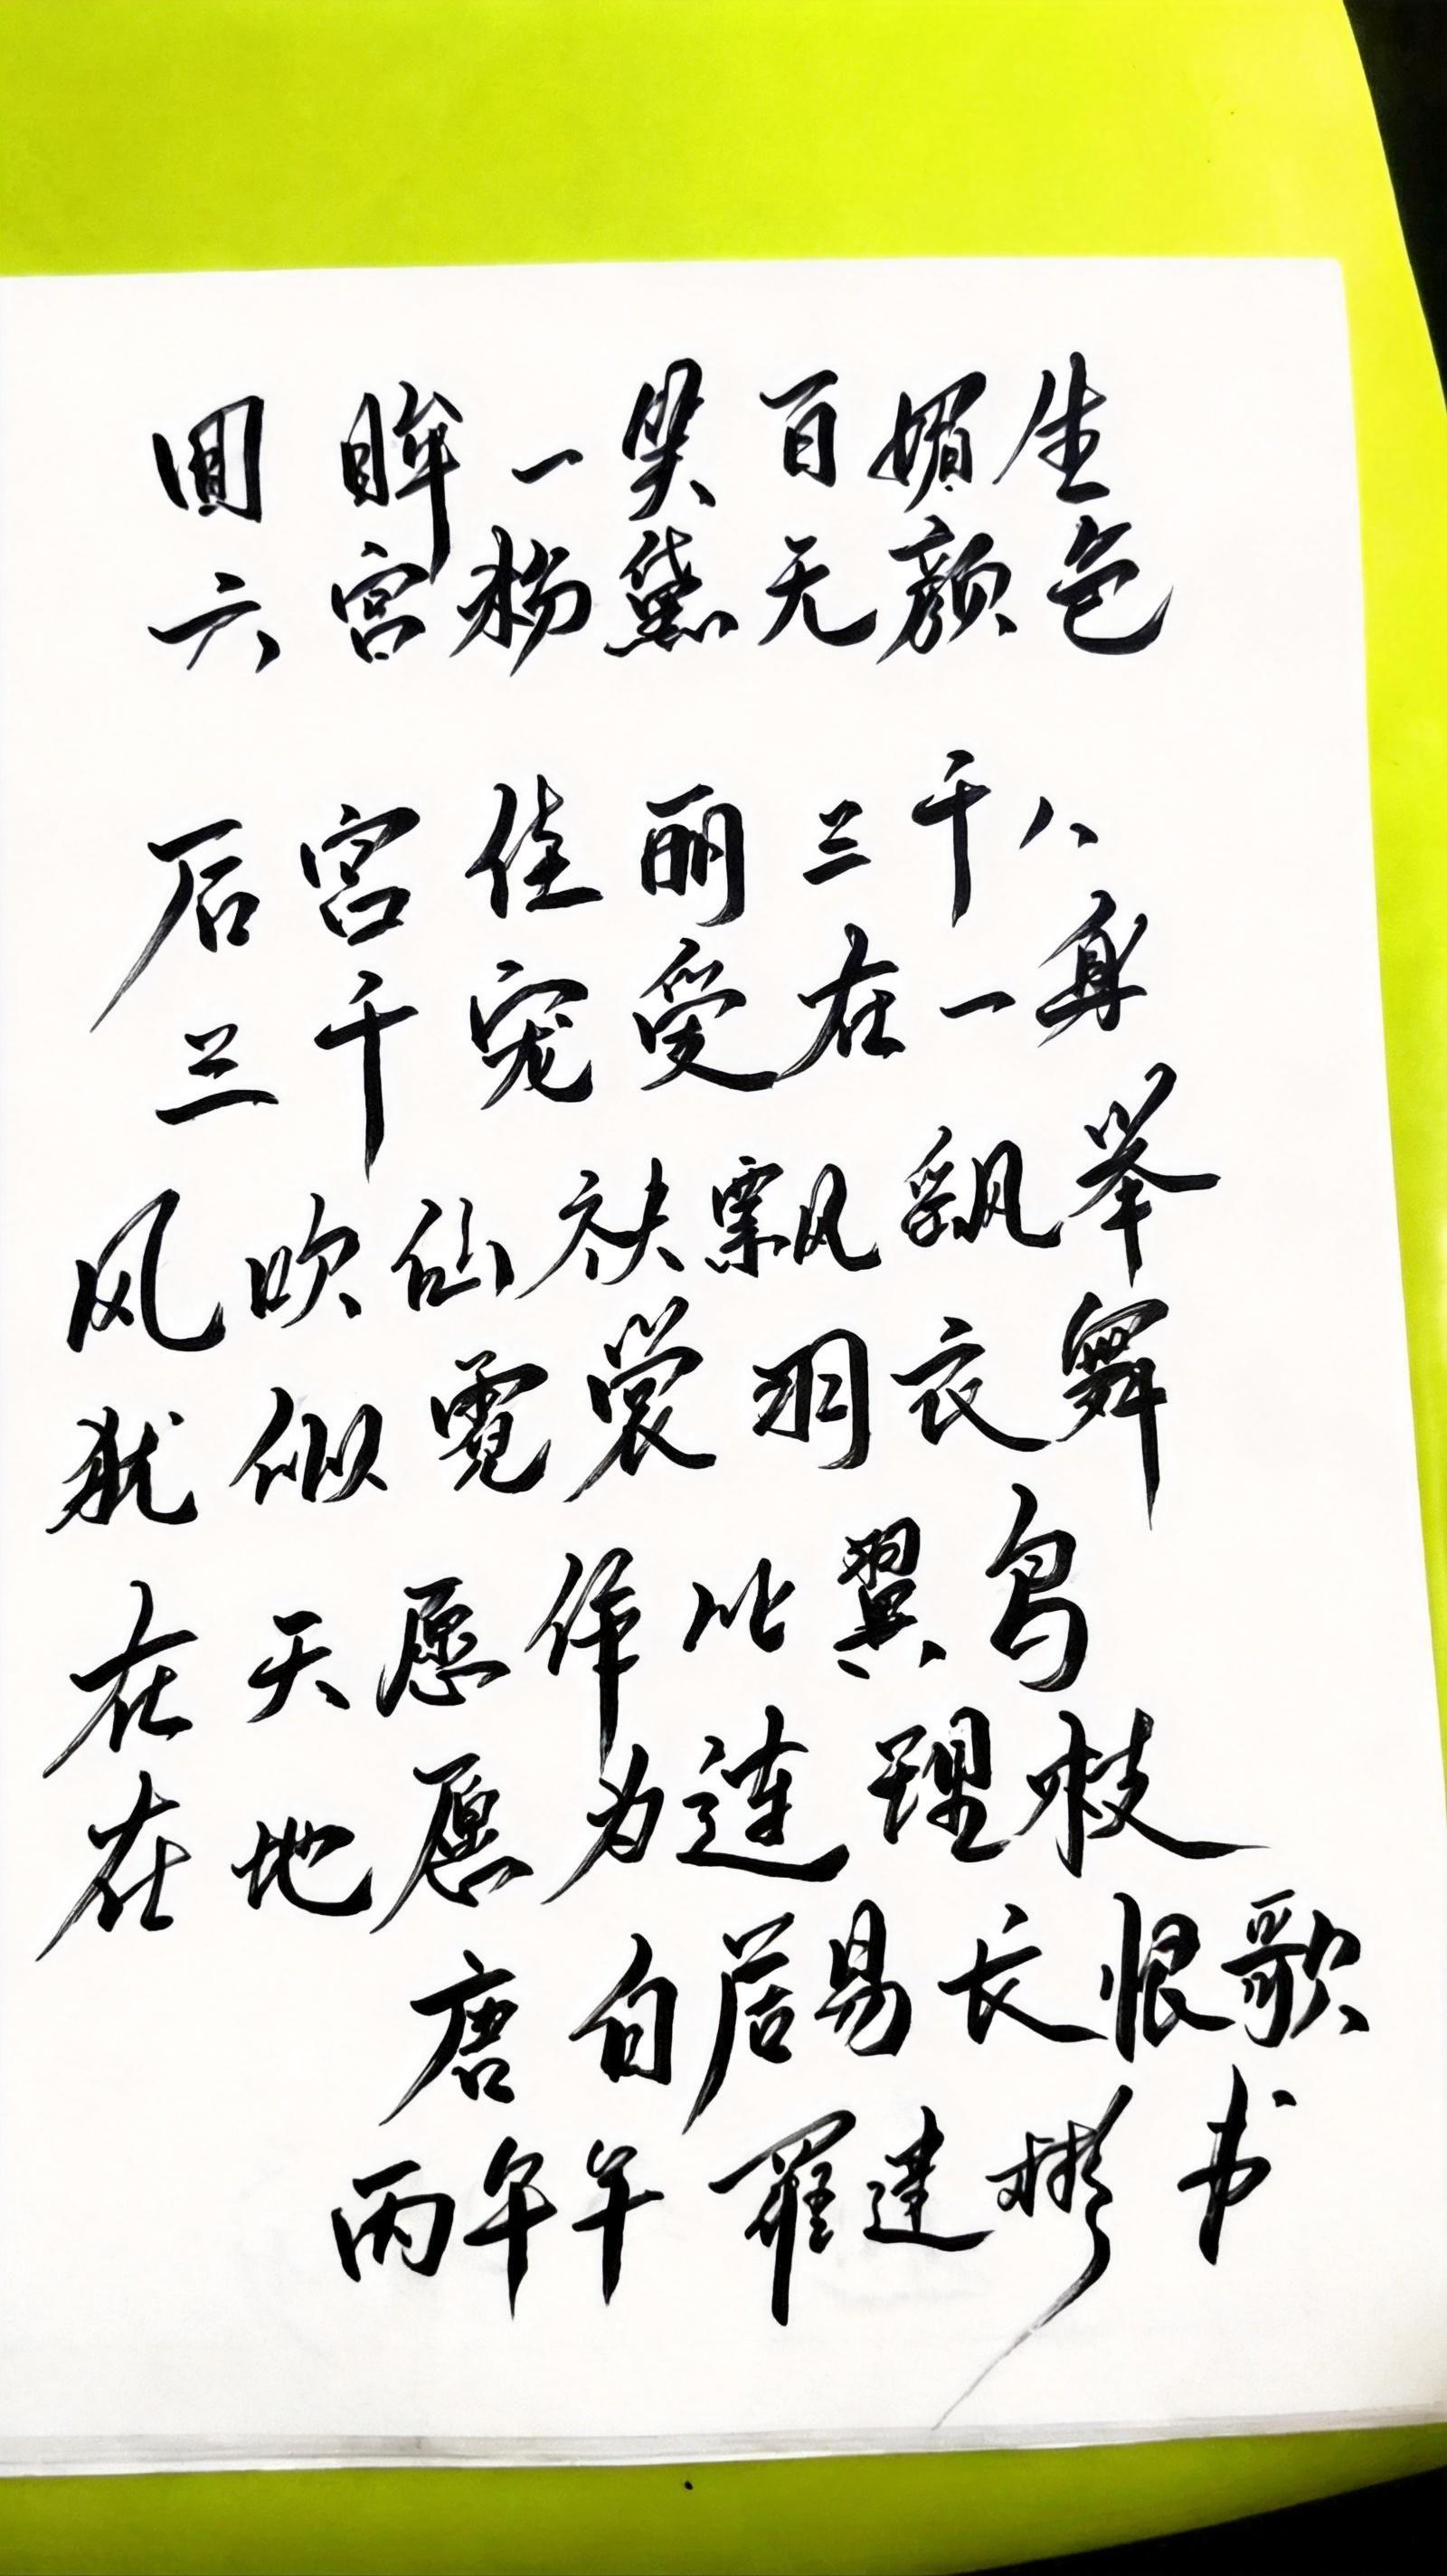 回眸一笑百媚生
六宫粉黛无颜色
后宫佳丽三千人
三千宠爱在一身
风吹仙袂飘飘举
犹似霓裳羽衣舞
在天愿作比翼鸟
在地愿为连理枝
唐白居易长恨歌
丙午年罗建彬书